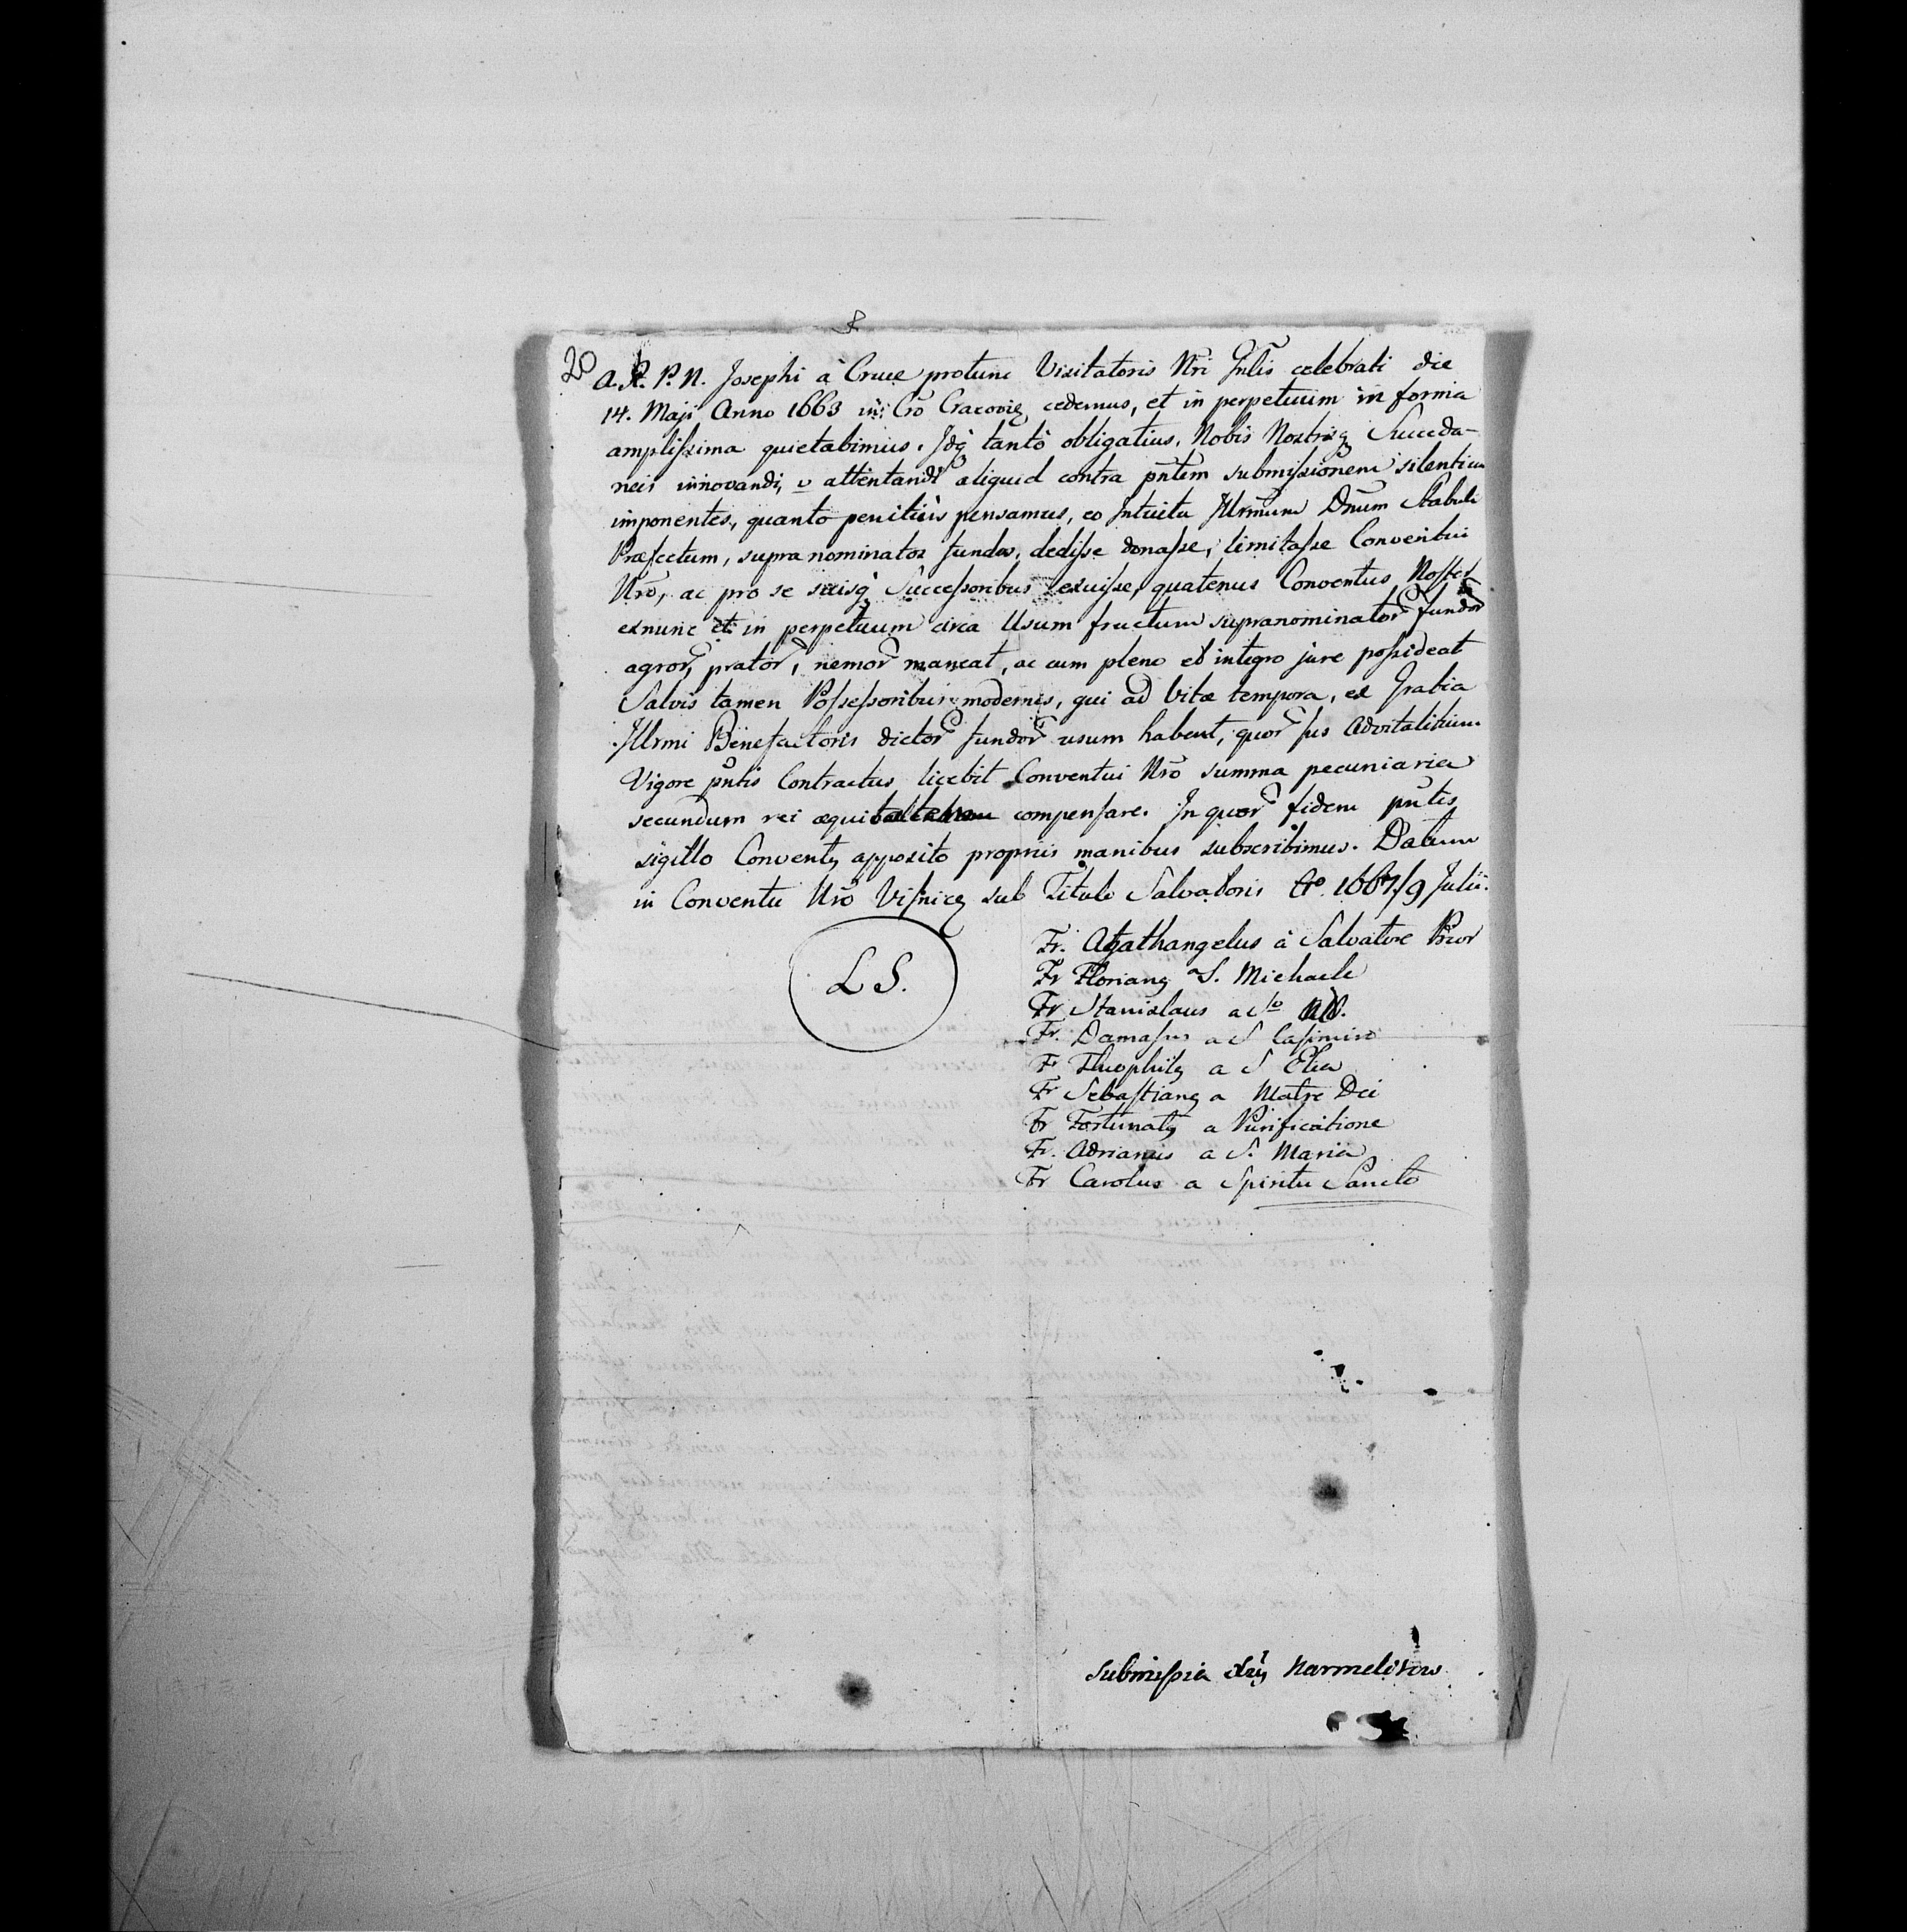 20
A. R. P. N. Josephi à Cruce protunc Visitatoris Nri Gnlis celebrati die
14. Maji Anno 1663 in Cro Cracoviæ cedemus, et in perpetuum in forma
amplissima quietabimus. Idq tantò obligatius, Nobis Nostrisq Succeda-
neis innovandi, v attentandi aliquid contra pntem submissionem silentium
imponentes, quanto penitiùs pensamus, eo Intuitu Illrmum Dnum Stabuli
Præfectum, supra nominatos fundos, dedisse donasse, limitasse Conventui
Nro, ac pro se suisq Successoribus exuisse, quatenus Conventus Noster
exnunc et in perpetuum circa Usum fructum supranominator fundor
agror, prator, nemor maneat, ac cum pleno et integro jure possideat
Salvis tamen Possessoribus modernis, qui ad Vitæ tempora, ex Gratia
Illrmi Benefactoris dictor fundor usum habent, quor Jus Advitalitium
Vigore pntis Contractus licebit Conventui Nro summa pecuniaria
secundum rei æquitatem compensare. In quor fidem pntes
sigillo Conventus apposito propriis manibus subscribimus. Datum
in Conventu Nro Visnicæ sub Titulo Salvatoris Ao. 1667/9 Julii.
L S.
Fr. Agathangelus à Salvatore Prior
Fr Florianus a S. Michaele
Fr Stanislaus a
Fr. Damasus a S Casimiro
F Theophilus a S Elia
Fr Sebastianus a Matre Dei
Fr Fortunatus a Purificatione
Fr. Adrianus a S. Maria
Fr Carolus a Spiritu Sancto
Submissia Karmelitow